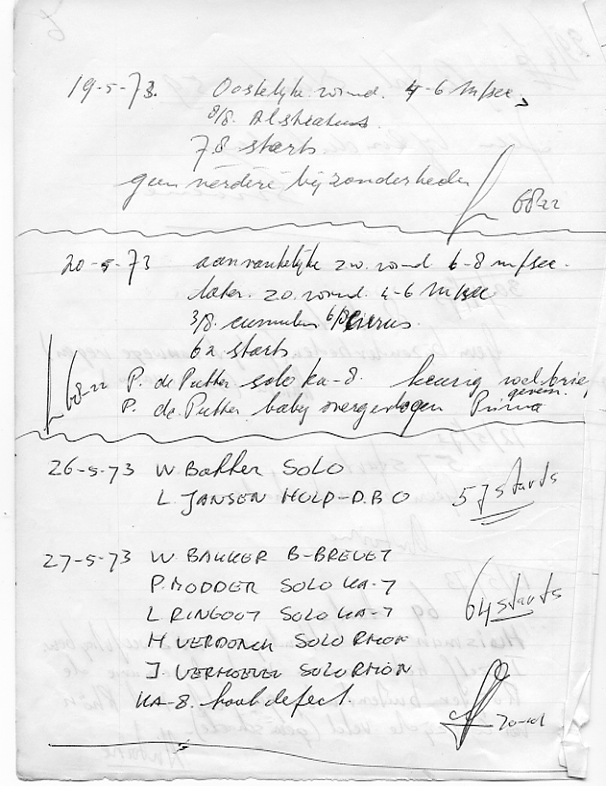 19-5-73. Oostelijke wind. 4-6 m/sec,
8/8. Alstratus.
78 starts
geen verdere bijzonderheden
68-22
20-5-73 aanvankelijke z.w. wind 6-8 m/sec.
later. z.o. wind 4-6 m/sec
3/8. cumulus 6/8 Cirrus.
62 starts
68-22 P. de Putter solo Ka-8. keurig
P. de Putter baby overgevlogen Prima
26-5-73 W. Bakker SOLO
L. JANSEN HULP-D.B.O 57 starts
27-5-73 W. BAKKER B-BREVET
P. MODDER SOLO KA-7
L. RINGOOT SOLO KA-7 64 starts
H VERDONCK SOLO RHÖN
J. VERHOEVEN SOLO RHÖN
KA-8. haak defect.